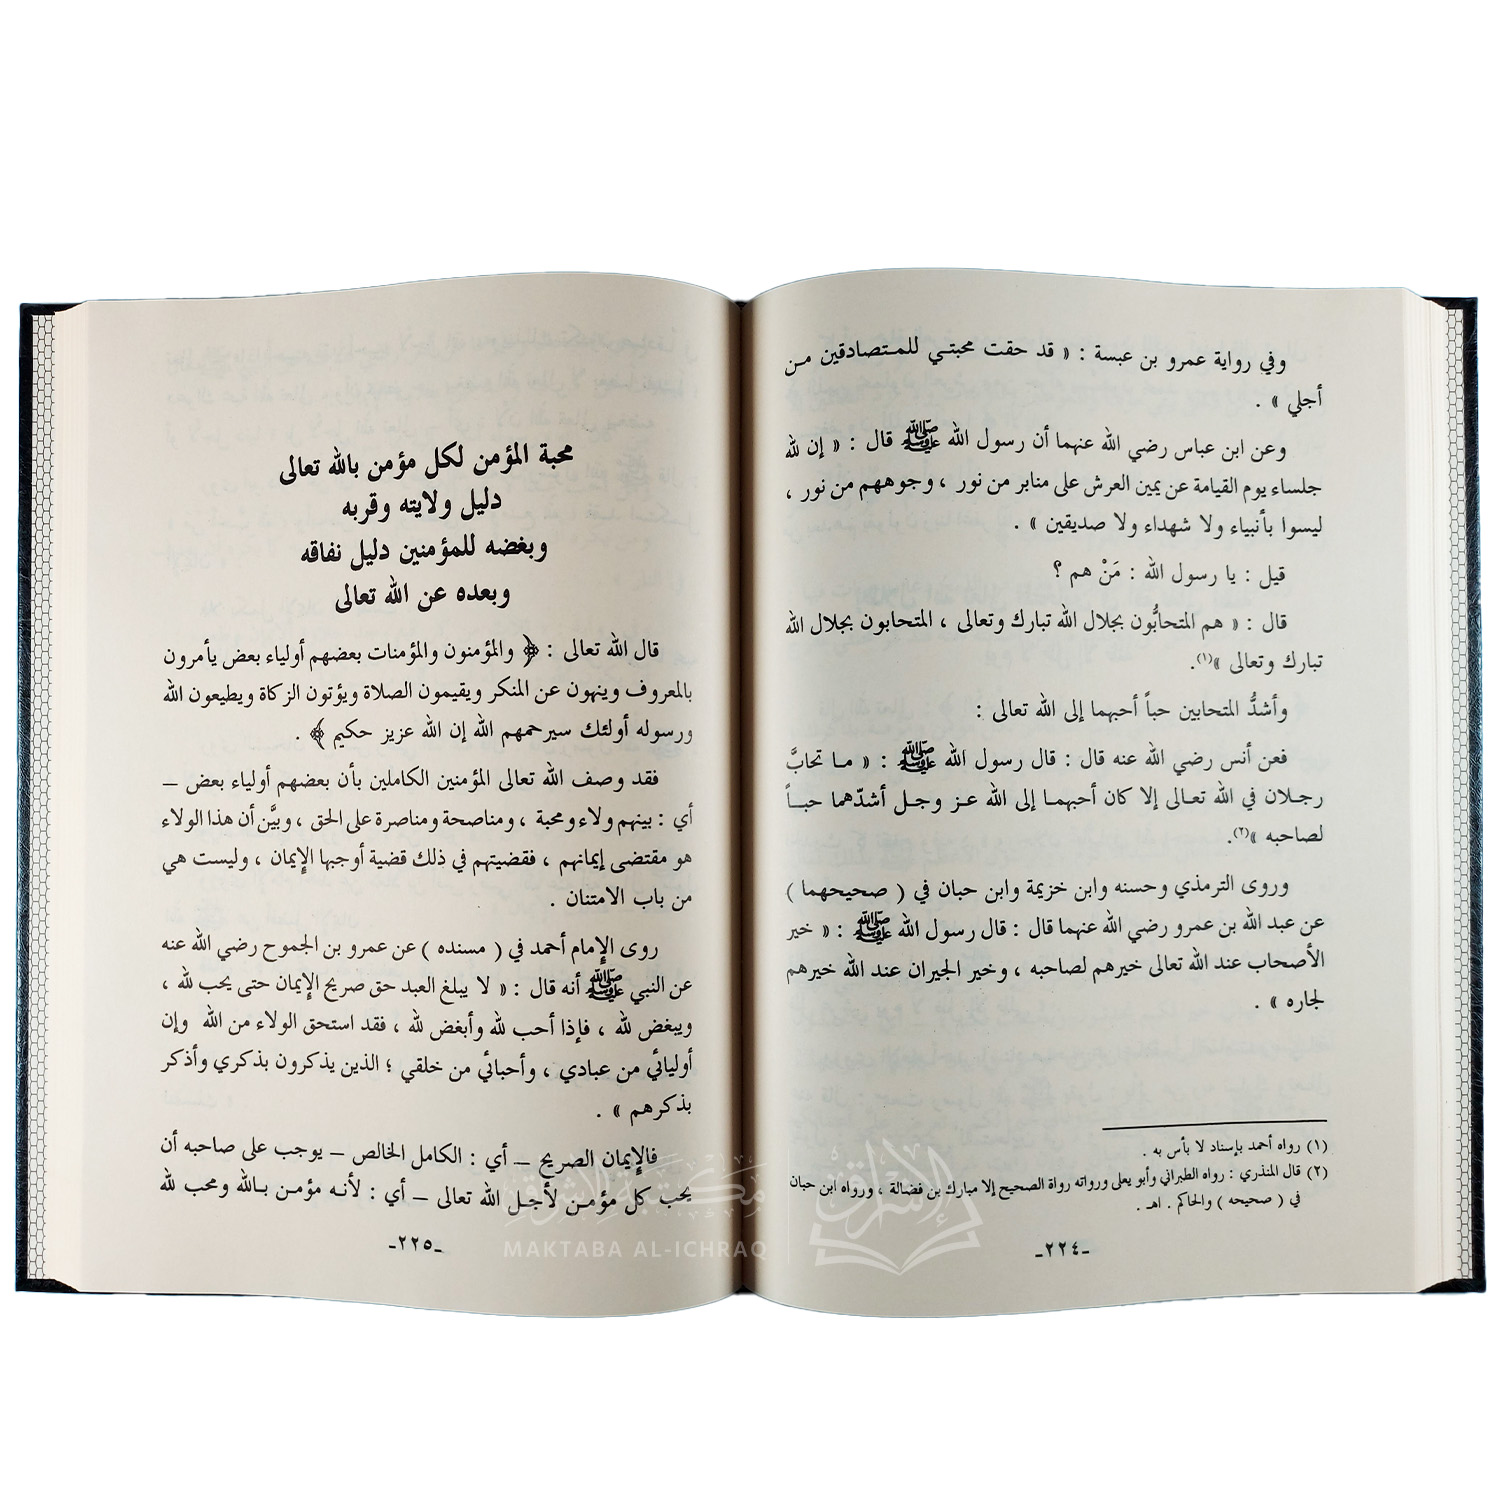 وفي رواية عمرو بن عبسة : « قد حقت محبتي للمتصادقين من
أجلي » .
وعن ابن عباس رضي الله عنهما أن رسول الله ﷺ قال : « إن لله
جلساء يوم القيامة عن يمين العرش على منابر من نور ، وجوههم من نور ،
ليسوا بأنبياء ولا شهداء ولا صديقين » .
قيل : يا رسول الله : مَنْ هم ؟
قال : « هم المتحابُّون بجلال الله تبارك وتعالى ، المتحابون بجلال الله
تبارك وتعالى »(١).
وأشدُّ المتحابين حباً أحبهما إلى الله تعالى :
فعن أنس رضي الله عنه قال : قال رسول الله ﷺ : « ما تحابَّ
رجلان في الله تعالى إلا كان أحبهما إلى الله عز وجل أشدّهما حباً
لصاحبه »(٢).
وروى الترمذي وحسنه وابن خزيمة وابن حبان في ( صحيحهما )
عن عبد الله بن عمرو رضي الله عنهما قال : قال رسول الله ﷺ : « خير
الأصحاب عند الله تعالى خيرهم لصاحبه ، وخير الجيران عند الله خيرهم
لجاره » .
(١) رواه أحمد بإسناد لا بأس به .
(٢) قال المنذري : رواه الطبراني وأبو يعلى ورواته رواة الصحيح إلا مبارك بن فضالة ، ورواه ابن حبان
في ( صحيحه ) والحاكم . اهـ .
-٢٢٤-
محبة المؤمن لكل مؤمن بالله تعالى
دليل ولايته وقربه
وبغضه للمؤمنين دليل نفاقه
وبعده عن الله تعالى
قال الله تعالى : ﴿ والمؤمنون والمؤمنات بعضهم أولياء بعض يأمرون
بالمعروف وينهون عن المنكر ويقيمون الصلاة ويؤتون الزكاة ويطيعون الله
ورسوله أولئك سيرحمهم الله إن الله عزيز حكيم ﴾ .
فقد وصف الله تعالى المؤمنين الكاملين بأن بعضهم أولياء بعض –
أي : بينهم ولاء ومحبة ، ومناصحة ومناصرة على الحق ، وبيَّن أن هذا الولاء
هو مقتضى إيمانهم ، فقضيتهم في ذلك قضية أوجبها الإيمان ، وليست هي
من باب الامتنان .
روى الإمام أحمد في ( مسنده ) عن عمرو بن الجموح رضي الله عنه
عن النبي ﷺ أنه قال : « لا يبلغ العبد حق صريح الإيمان حتى يحب لله ،
ويبغض لله ، فإذا أحب لله وأبغض لله ، فقد استحق الولاء من الله وإن
أوليائي من عبادي ، وأحبائي من خلقي ؛ الذين يذكرون بذكري وأذكر
بذكرهم » .
فالإيمان الصريح – أي : الكامل الخالص – يوجب على صاحبه أن
يحب كل مؤمن لأجل الله تعالى – أي : لأنه مؤمن بالله ومحب لله
-٢٢٥-
مكتبة الإشراق
MAKTABA AL-ICHRAQ
الإشراق